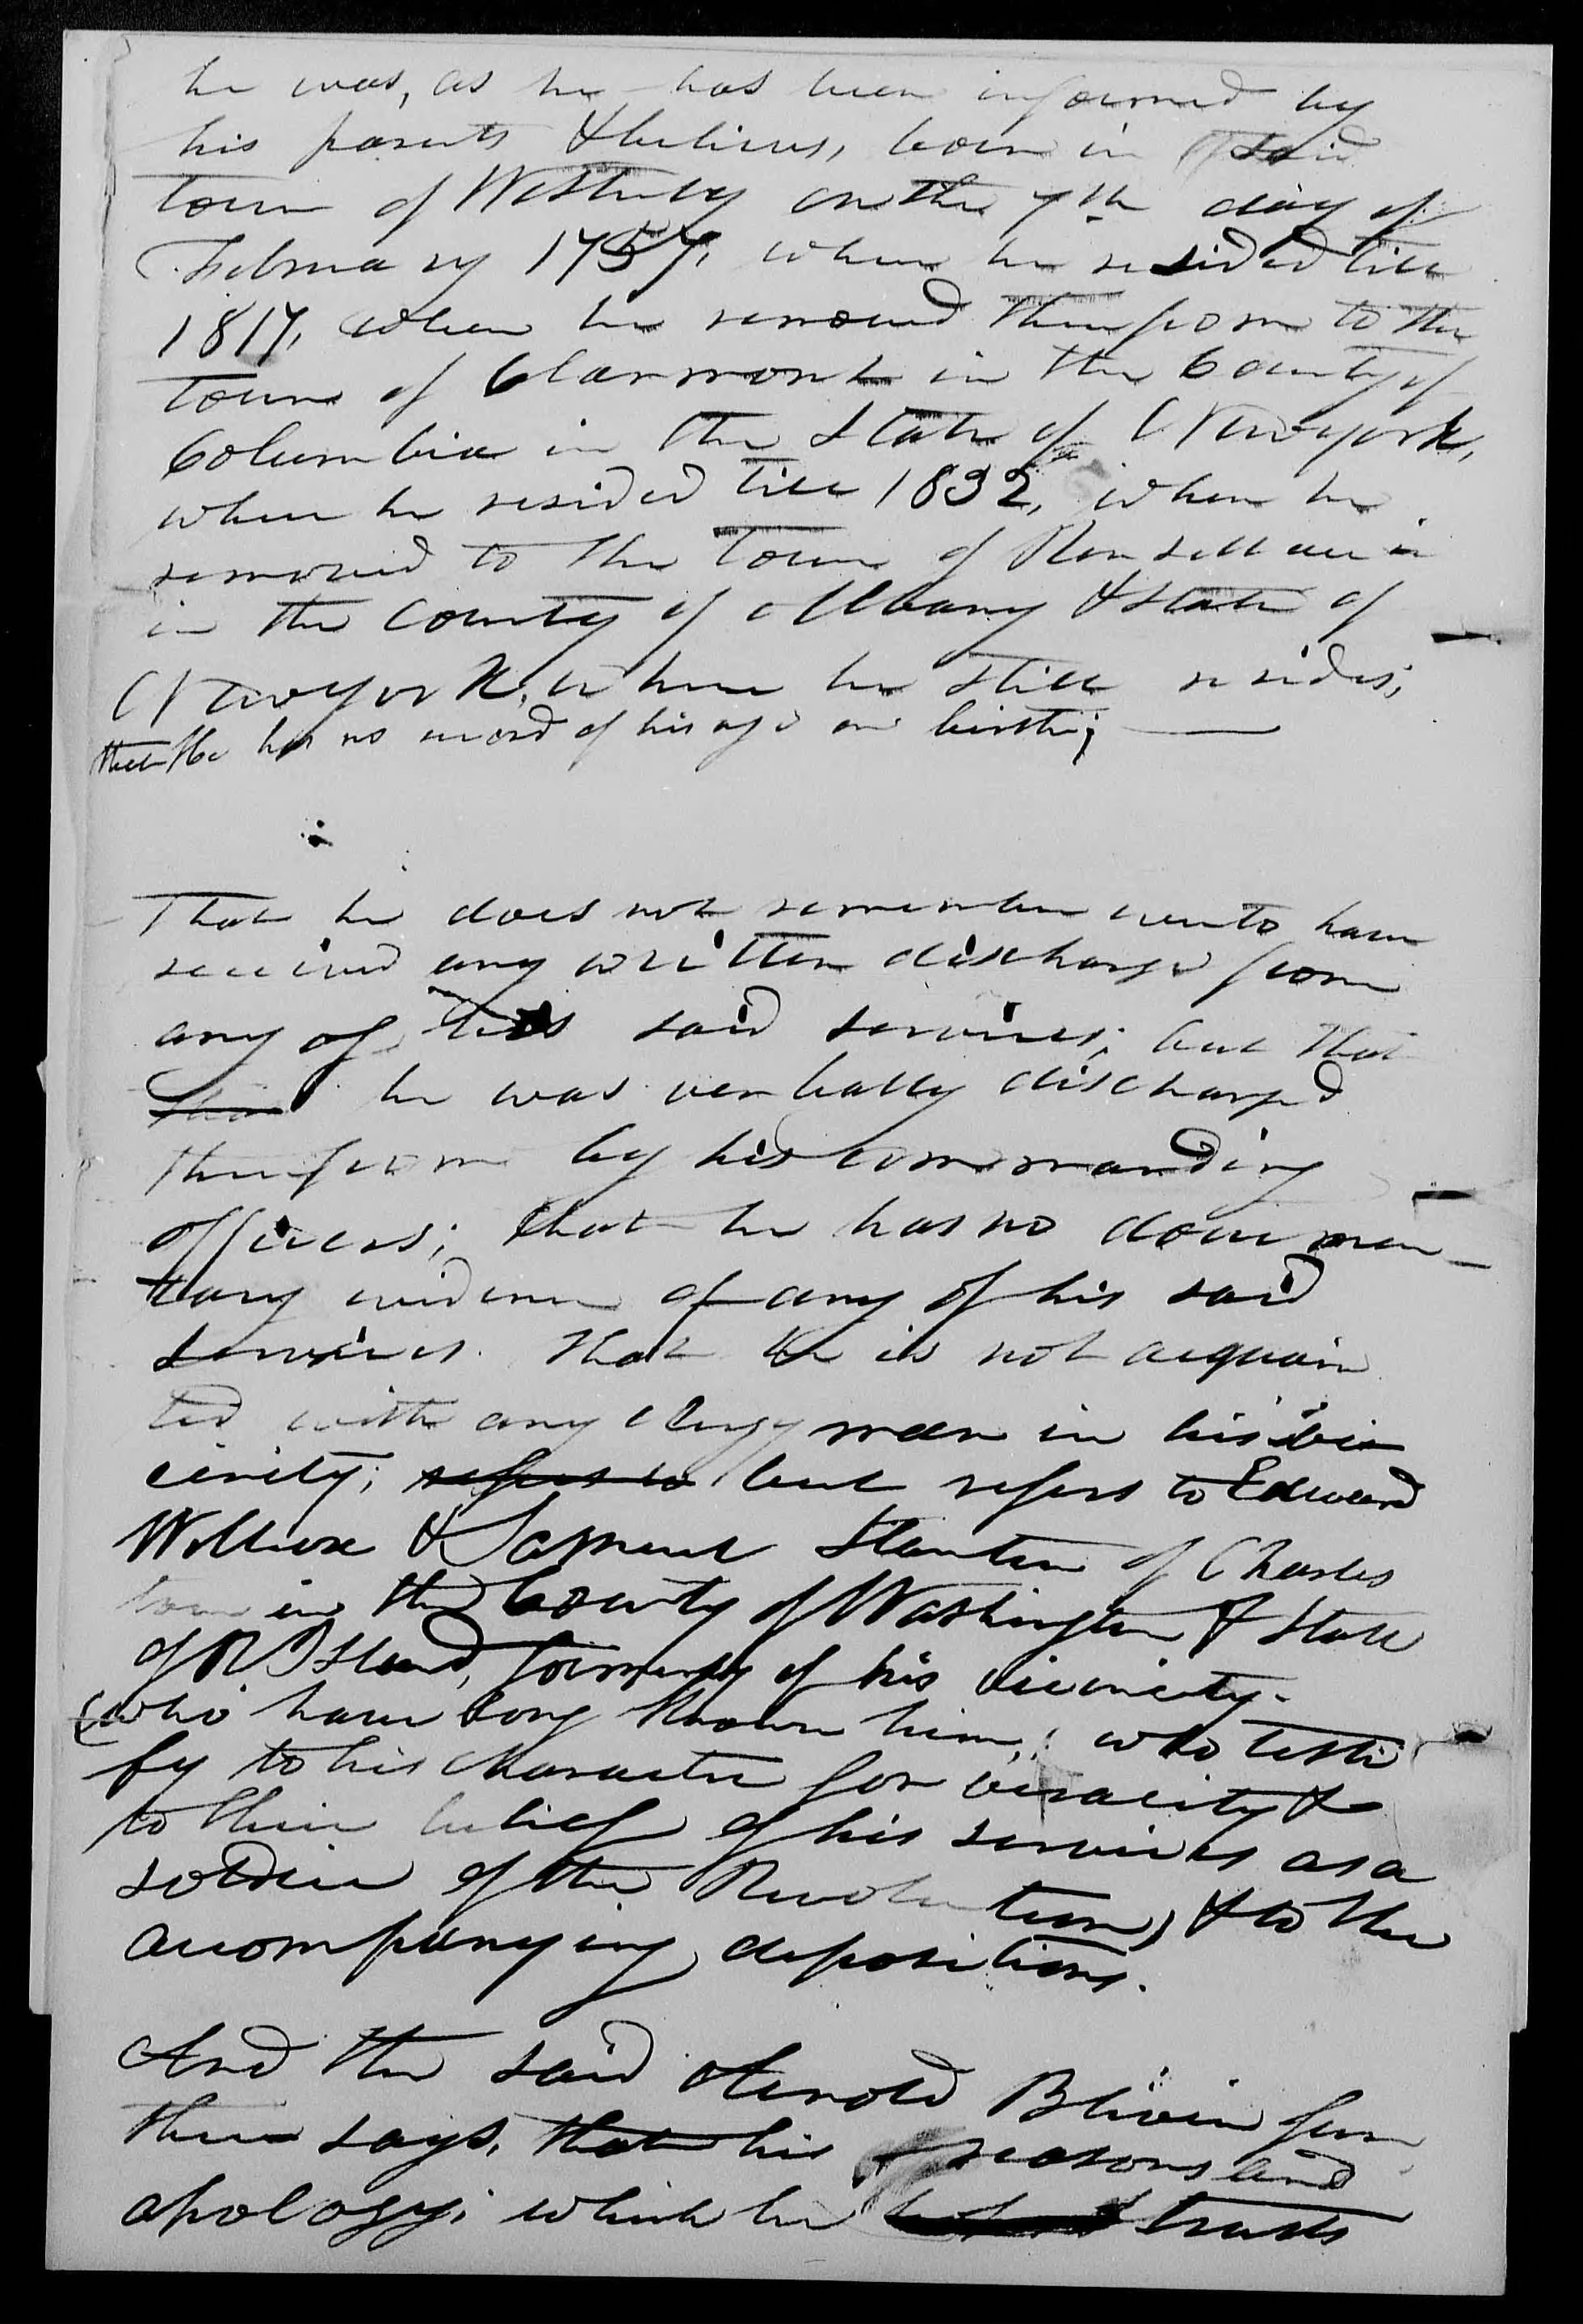 he was, as he has been informed by
his parents & believes, born in said
town of Westerly on the 7th day of
February 1757, where he resided till
1817, when he removed therefrom to the
town of Clarmont in the County of
Columbia in the State of Newyork,
where he resided till 1832, when he
removed to the town of Rensellaer in
in the County of Albany & State of
Newyork, where he still resides;
that he has no record of his age or birth;
That he does not remember ever to have
received any written discharge from
any of his said services; but that
that he was verbally discharged
therefrom by his commanding
officers; that he has no documen-
tary evidence of any of his said
services. That he is not acquain
ted with any clergyman in his vi
cinity; refers to but refers to Edward
Willcox & Samuel Stanton of Charles
town in the County of Washington & State
of R Island, formerly of his vicinity.
(who have long known him, who testi
fy to his character for veracity &
to their belief of his services as a
soldier of the Revolution) & to the
accompanying depositions.
And the said Arnold Bliven fur
ther says, that his reasons and
apology, which he trusts